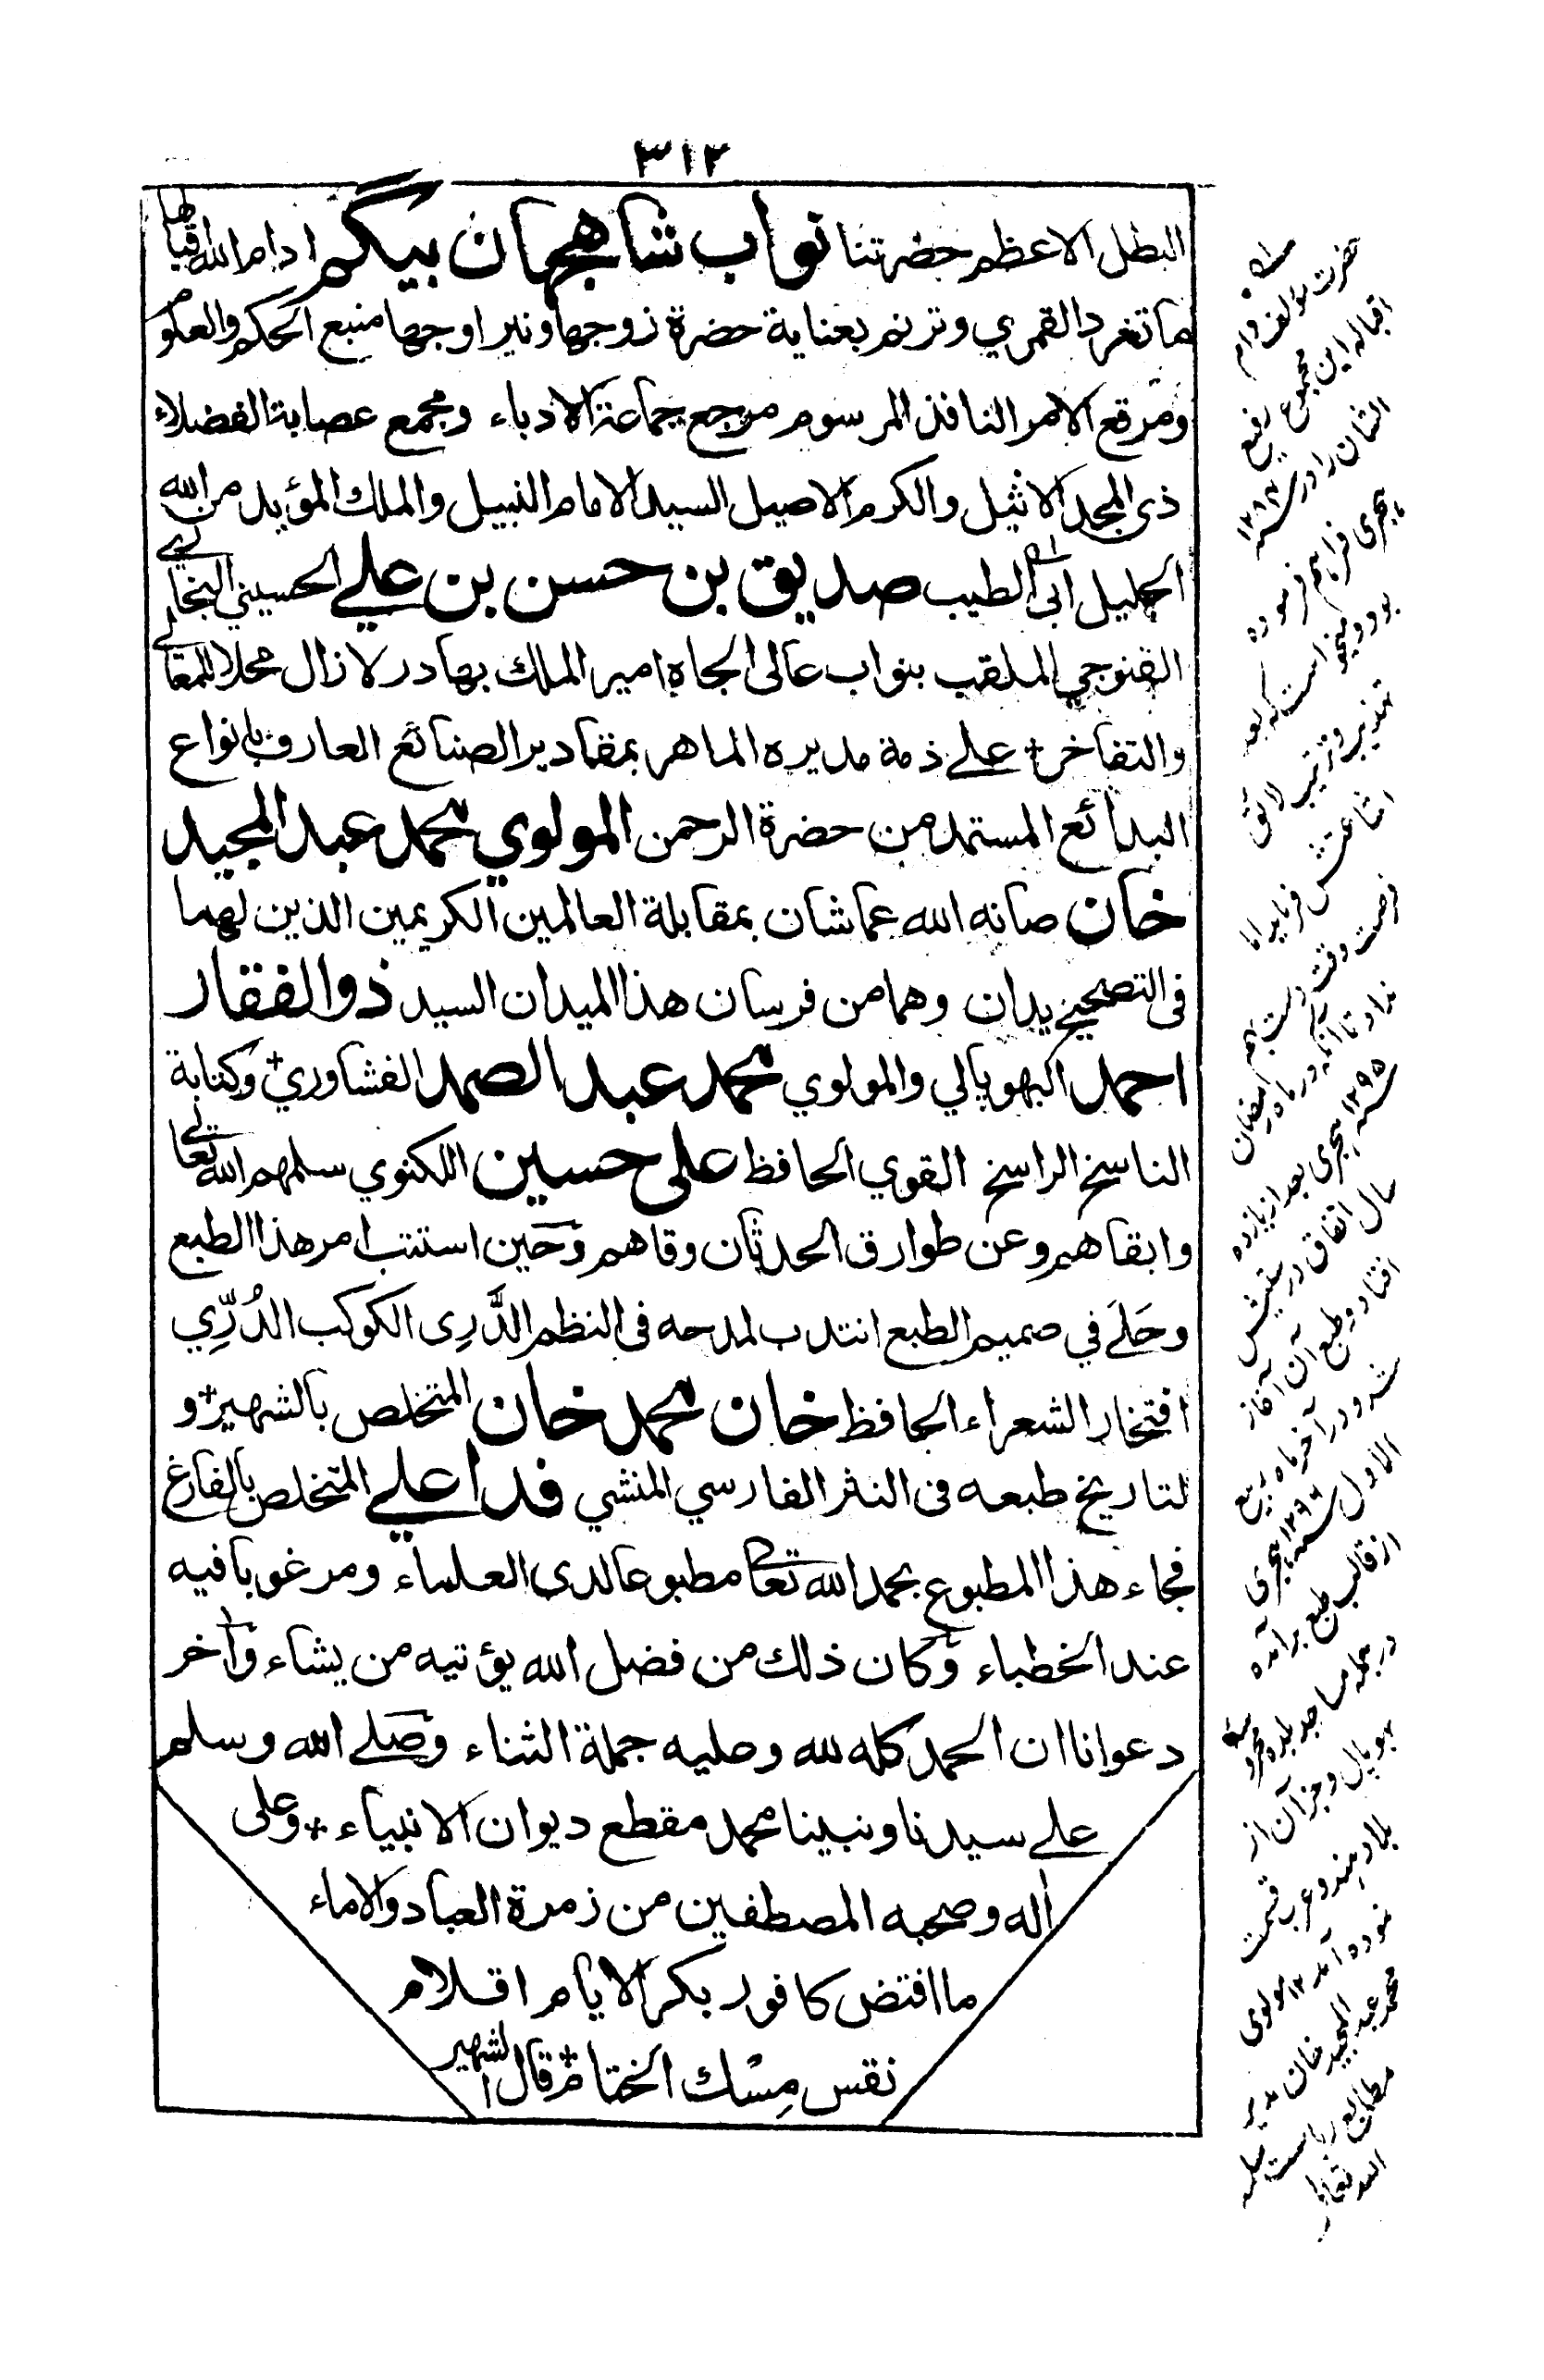 ٣١٢
البطل الاعظم حضرتنا نواب شاهجهان بيگم ادام الله اقبالها
ما تغرد القمري وترنم بعناية حضرة زوجها ونير اوجها منبع الحكم والعلوم
ومرقع الامر النافذ المرسوم مرجع جماعة الادباء ومجمع عصابة الفضلاء
ذى المجد الاثيل والكرم الاصيل السيد الامام النبيل والملك المؤيد من الله
الجليل ابى الطيب صديق بن حسن بن علي الحسيني البخاري
القنوجي الملقب بنواب عالى الجاه امير الملك بهادر لا زال محلا للمعالي
والتفاخر على ذمة مديره الماهر بمقادير الصنائع العارف بانواع
البدائع المستمد من حضرة الرحمن المولوي محمد عبد المجيد
خان صانه الله عما شان بمقابلة العالمين الكريمين الذين لهما
فى التصحيح يدان وهما من فرسان هذا الميدان السيد ذو الفقار
احمد البهوپالي والمولوي محمد عبد الصمد الفشاوري وكتابة
الناسخ الراسخ القوي الحافظ على حسين اللكنوي سلمهم الله تعالى
وابقاهم وعن طوارق الحدثان وقاهم وحين استتب امر هذا الطبع
وحَلَے في صميم الطبع انتدب لمدحه فى النظم الدَّرِى الكوكب الدُرِّي
افتخار الشعراء الحافظ خان محمد خان المتخلص بالشهير و
لتاريخ طبعه فى النثر الفارسي المنشي فدا علي المتخلص بالفارغ
فجاء هذا المطبوع بحمد الله تعالى مطبوعا لدى العلماء ومرغوبا فيه
عند الخطباء وكان ذلك من فضل الله يؤتيه من يشاء وآخر
دعوانا ان الحمد كله لله وعليه جملة الثناء وصلے الله وسلم
علے سيدنا ونبينا محمد مقطع ديوان الانبياء وعلى
اله وصحبه المصطفين من زمرة العباد والاماء
ما افتض كافور بكر الايام اقلام
نقس مِسْك الختام قال الشهير
حضرت مؤلف دام
اقباله این مجموع رفیع
الشان را در
هجری فراهم فرموده
بود و میخواست که بعد
تهذیب و ترتیب لائق
اشاعتش فرماید اما
فرصت وقت دست بهم
نداد تا آنکه در ماه رمضان
سنه ۱۲۹۵ هجری بعد از یازده
سال اتفاق در
افتاد و طبع آن آغاز
شد و در آخر ماه ربیع
الاول سنه ۱۲۹۶ هجری
از قالب طبع برآمده
در جمله مساجد بلده محروسه
بهوپال و جز آن از
بلاد هند و عرب قسمت
نموده آمد ۱۲ مولوی
محمد عبد المجید خان مدیر
مطابع ریاست سلمه
الله تعالی